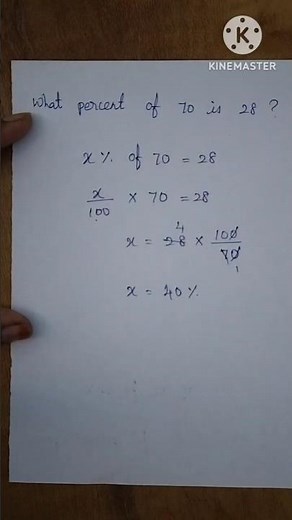 KINEMASTER
What percent of 70 is 28 ?
x % of 70 = 28
x/100 × 70 = 28
4
x = 28 × 100/70
1
x = 40 %